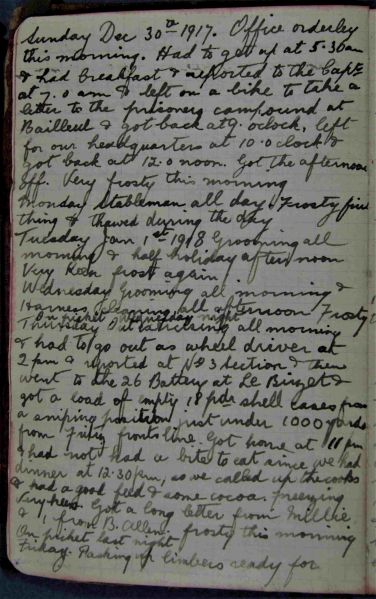 Sunday Dec 30th 1917. Office orderley
this morning. Had to get up at 5.30am
& had breakfast & reported to the Capt
at 7.0 am & left on a bike to take a
letter to the prisoners campound at
Bailleul & got back at 9. oclock, left
for our headquarters at 10.0 clock &
got back at 12.0 noon. Got the afternoon
off. Very frosty this morning
Monday Stableman all day. Frosty first
thing & thawed during the day
Tuesday Jan 1st 1918 Grooming all
morning & half holiday afternoon
Very Keen frost again
Wednesday Grooming all morning &
Harness cleaning all afternoon Frosty
On picket Wednesday night
Thursday Out all morning
& had to go out as wheel driver at
2 pm & reported at No 3 Section & then
went to the 26 Battery at Le Bizet &
got a load of empty 18 pdr shell cases from
a sniping position just under 1000 yards
from Fritz front line. Got home at 11 pm
& had not had a bite to eat since we had
dinner at 12.30 pm, so we called up the cooks
& had a good feed & some cocoa. freezing
Very keen. Got a long letter from Millie
& 1 from B. Allen. frosty this morning
On picket last night
Friday. Packing up limbers ready for